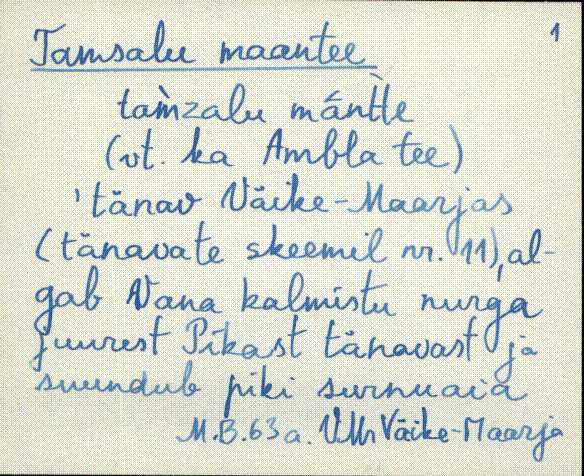 1
Tamsalu maantee
tam̀zalu mántt̀e
(vt. ka Ambla tee)
'tänav Väike-Maarjas
(tänavate skeemil nr. 11), al-
gab Vana kalmistu nurga
juurest Pikast tänavast ja
suundub piki surnuaia
M.B.63a. VMr Väike-Maarja